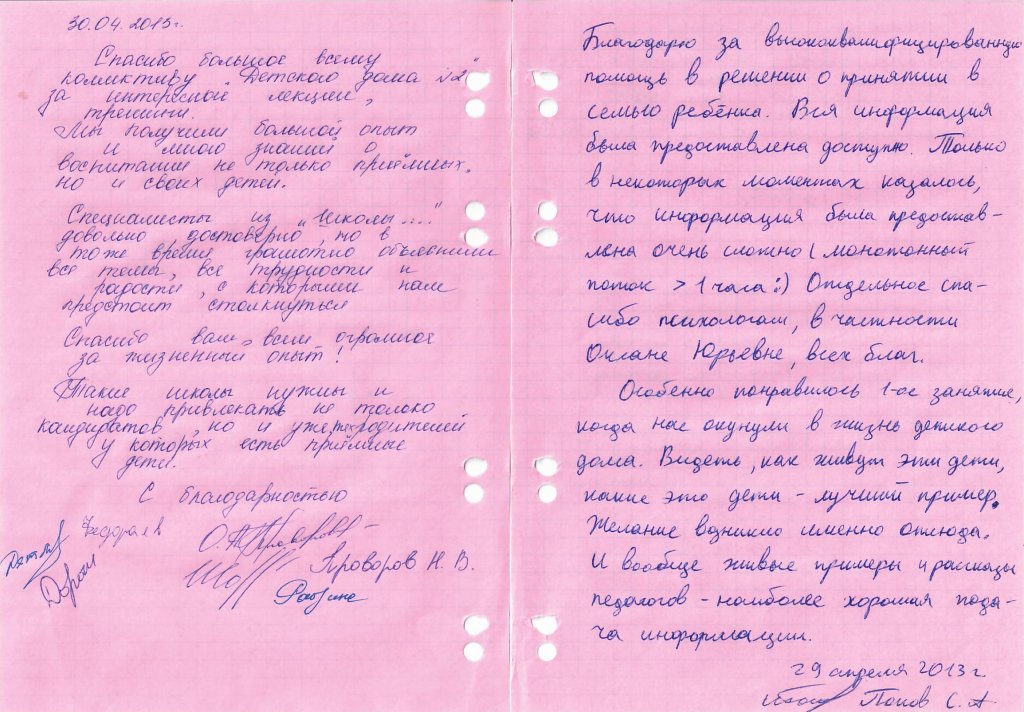 30.04.2013г.
Спасибо большое всему
коллективу "Детского дома №2"
за интересной лекции,
тренинги.
Мы получили большой опыт
и много знаний о
воспитании не только приёмных,
но и своих детей.
Специалисты из "Школы...."
довольно достоверно, но в
тоже время грамотно объяснили
все темы, все трудности и
радости, с которыми нам
предстоит столкнуться
Спасибо вам всем огромное
за жизненный опыт!
Такие школы нужны и
надо привлекать не только
кандидатов, но и уже тех родителей
у которых есть приёмные
дети.
С благодарностью
Яроворов Н. В.
Благодарю за высококвалифицированную
помощь в решении о принятии в
семью ребёнка. Вся информация
была предоставлена доступно. Только
в некоторых моментах казалось,
что информация была предостав-
лена очень сложно (монотонный
поток > 1 часа :) Отдельное спа-
сибо психологам, в частности
Оксане Юрьевне, всех благ.
Особенно понравилось 1-ое занятие,
когда нас окунули в жизнь детского
дома. Видеть, как живут эти дети,
какие это дети - лучший пример.
Желание возникло именно отсюда.
И вообще живые примеры и рассказы
педагогов - наиболее хорошая пода-
ча информации.
29 апреля 2013г.
Попов С. А